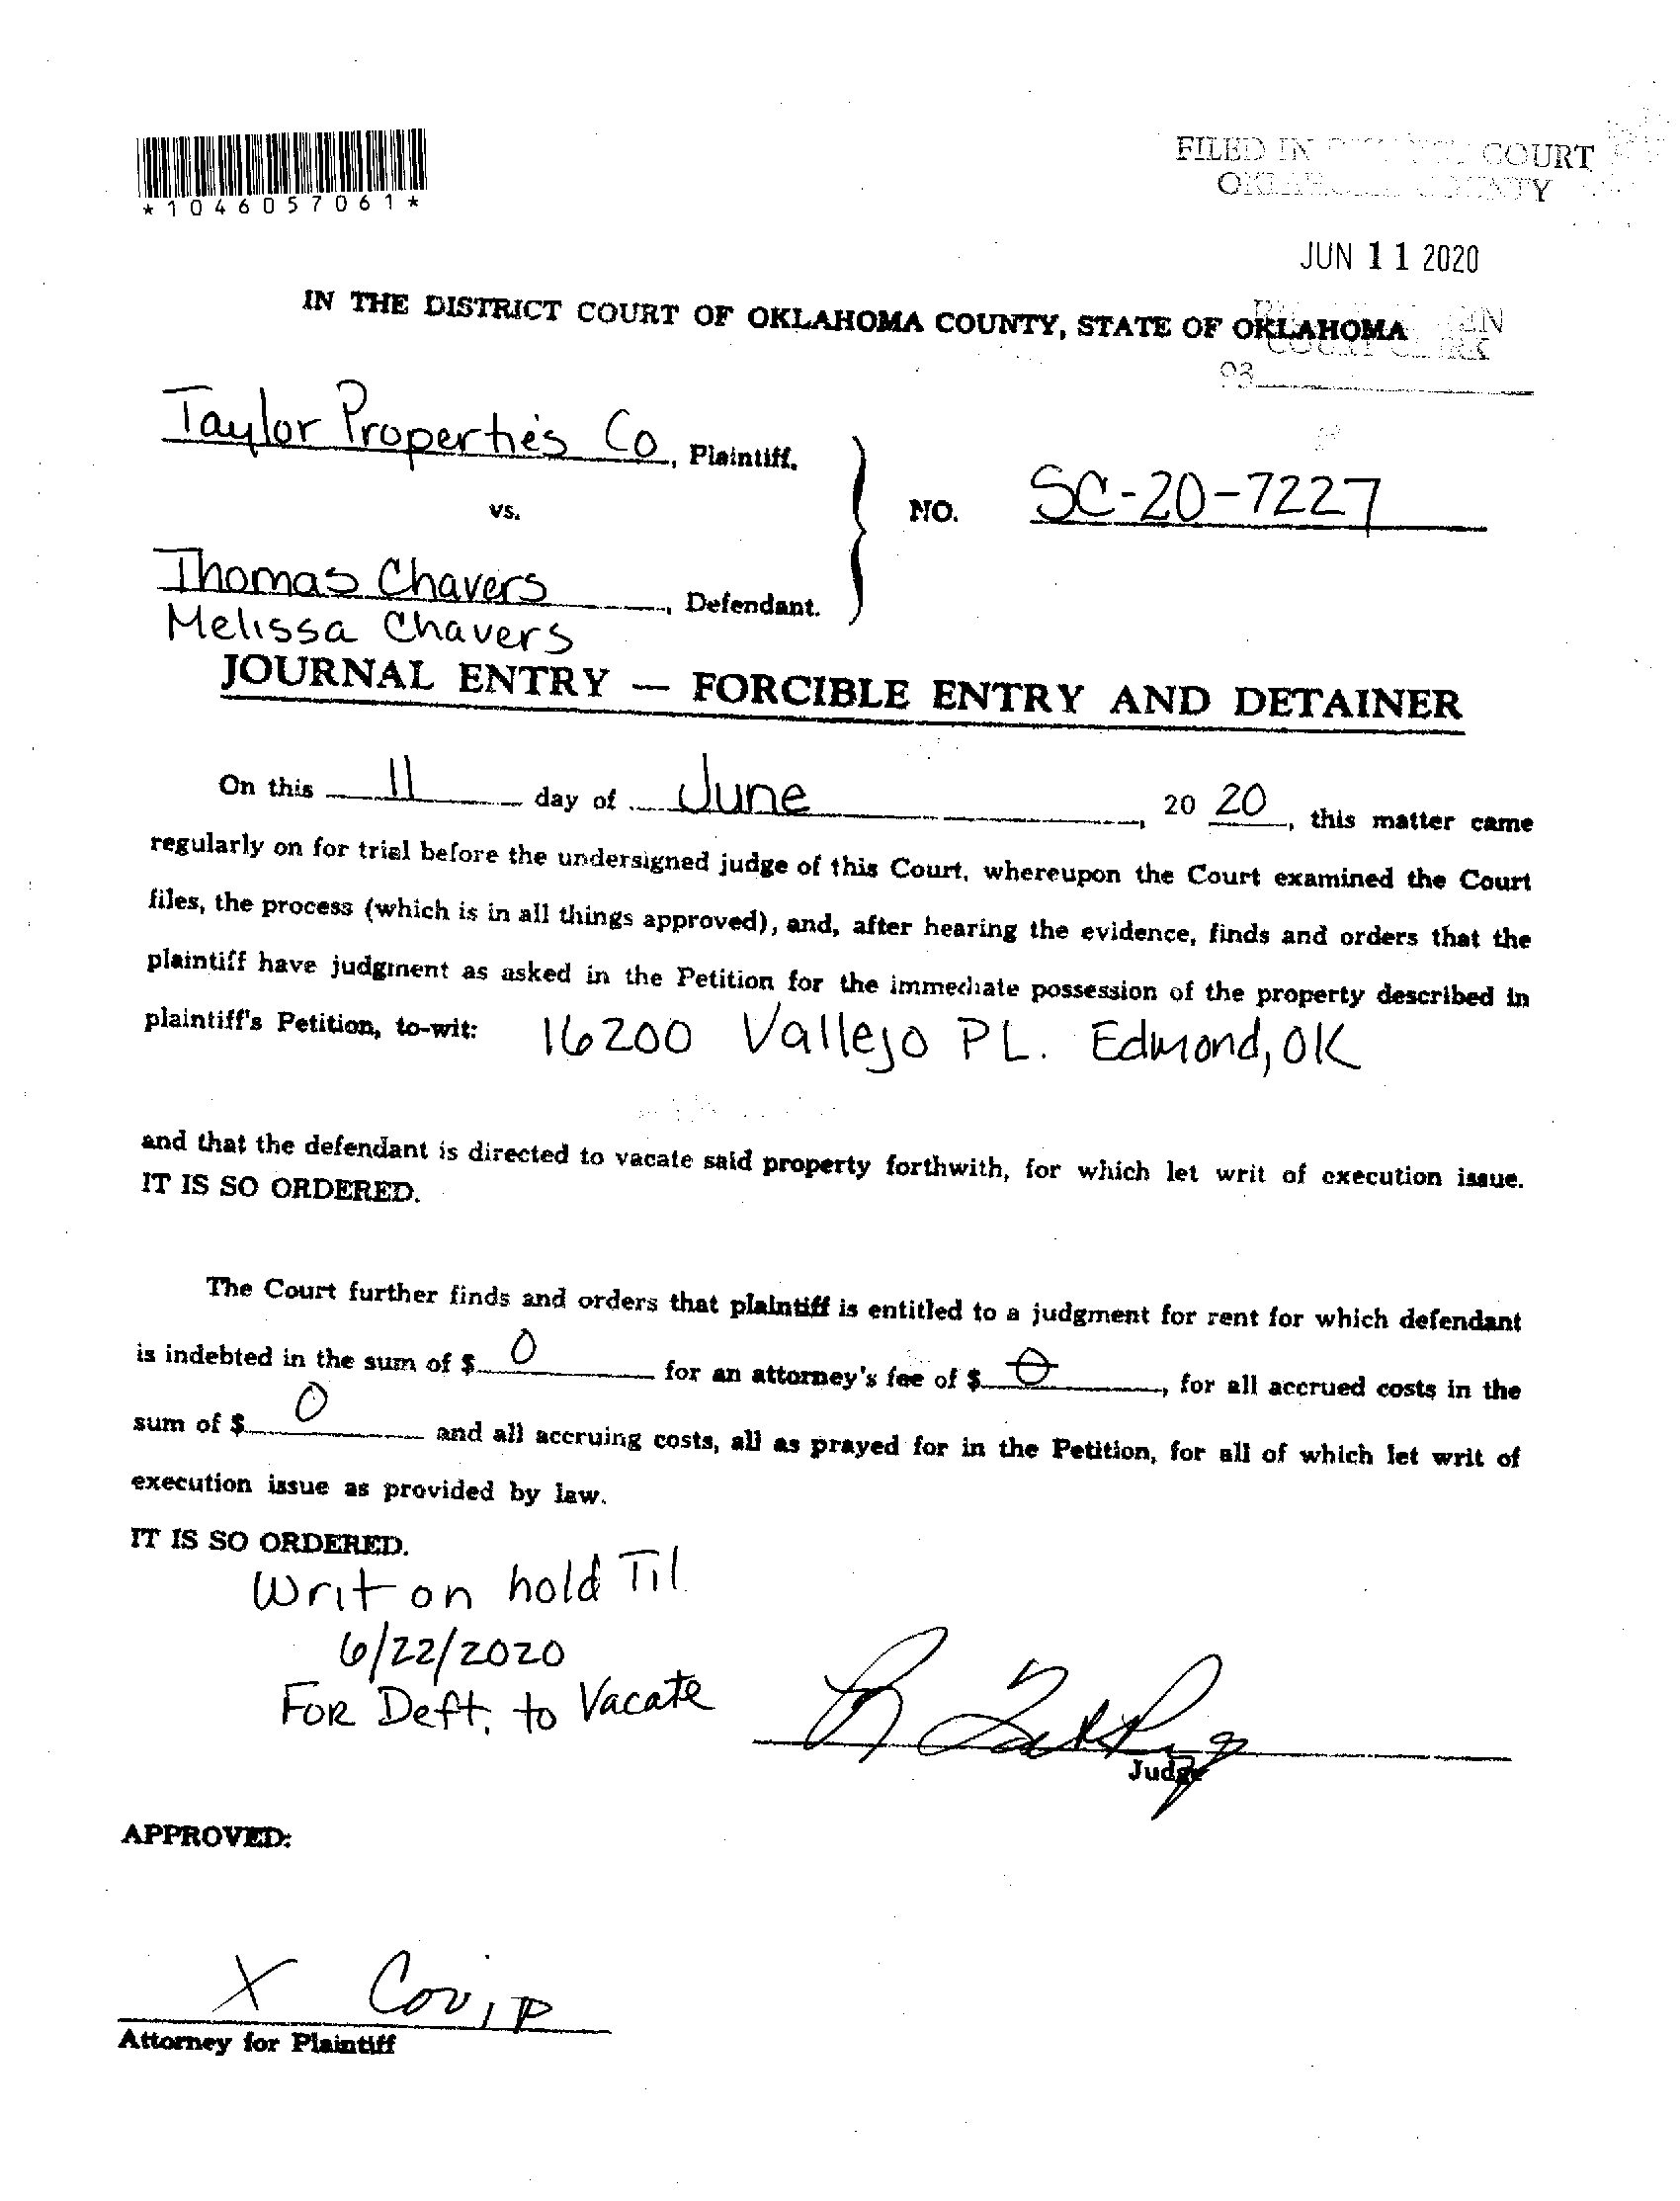 *1046057061*
FILED IN COURT
JUN 11 2020
IN THE DISTRICT COURT OF OKLAHOMA COUNTY, STATE OF OKLAHOMA
COURT CLERK
Taylor Properties Co, Plaintiff,
vs.
NO. SC-20-7227
Thomas Chavers, Defendant.
Melissa Chavers
JOURNAL ENTRY — FORCIBLE ENTRY AND DETAINER
On this 11 day of June, 20 20, this matter came
regularly on for trial before the undersigned judge of this Court, whereupon the Court examined the Court
files, the process (which is in all things approved), and, after hearing the evidence, finds and orders that the
plaintiff have judgment as asked in the Petition for the immediate possession of the property described in
plaintiff's Petition, to-wit: 16200 Vallejo PL. Edmond, OK
and that the defendant is directed to vacate said property forthwith, for which let writ of execution issue.
IT IS SO ORDERED.
The Court further finds and orders that plaintiff is entitled to a judgment for rent for which defendant
is indebted in the sum of $ 0 for an attorney's fee of $ 0, for all accrued costs in the
sum of $ 0 and all accruing costs, all as prayed for in the Petition, for all of which let writ of
execution issue as provided by law.
IT IS SO ORDERED.
Writ on hold Til
6/22/2020
FOR Deft. to Vacate
Judge
APPROVED:
X
Attorney for Plaintiff